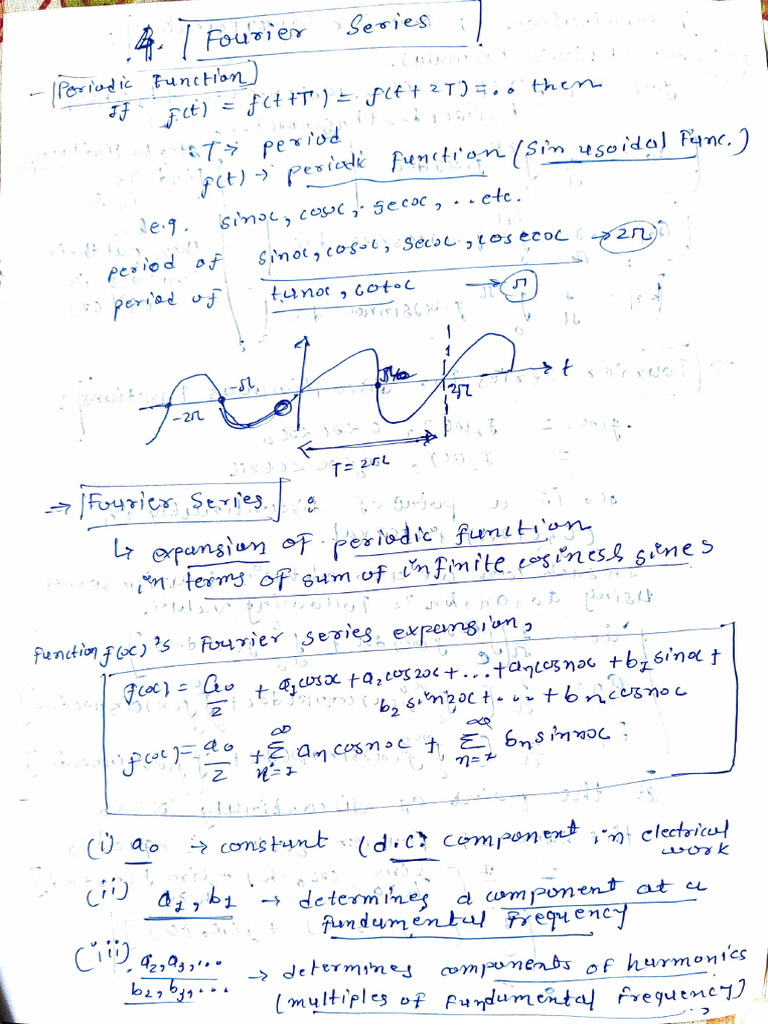 4. Fourier Series
- Periodic Function
If f(t) = f(t+T) = f(t+2T) = .. then
T → period
f(t) → periodic function (Sinusoidal Func.)
e.g. sinx, cosx, secx, ..etc.
period of sinx, cosx, secx, cosecx → 2π
period of tanx, cotx → π
-2π -π π 2π t
T = 2π
→ Fourier Series :
↳ expansion of periodic function
in terms of sum of infinite cosines & sines
Function f(x)'s Fourier series expansion,
f(x) = a₀/2 + a₁cosx + a₂cos2x + ... + aₙcosnx + b₁sinx +
b₂sin2x + ... + bₙcosnx
f(x) = a₀/2 + ∞Σn=1 aₙcosnx + ∞Σn=1 bₙsinnx
(i) a₀ → constant (d.c.) component in electrical
work
(ii) a₁, b₁ → determines a component at a
fundamental frequency
(iii) a₂, a₃, ...
b₂, b₃, ... → determines components of harmonics
(multiples of fundamental frequency)